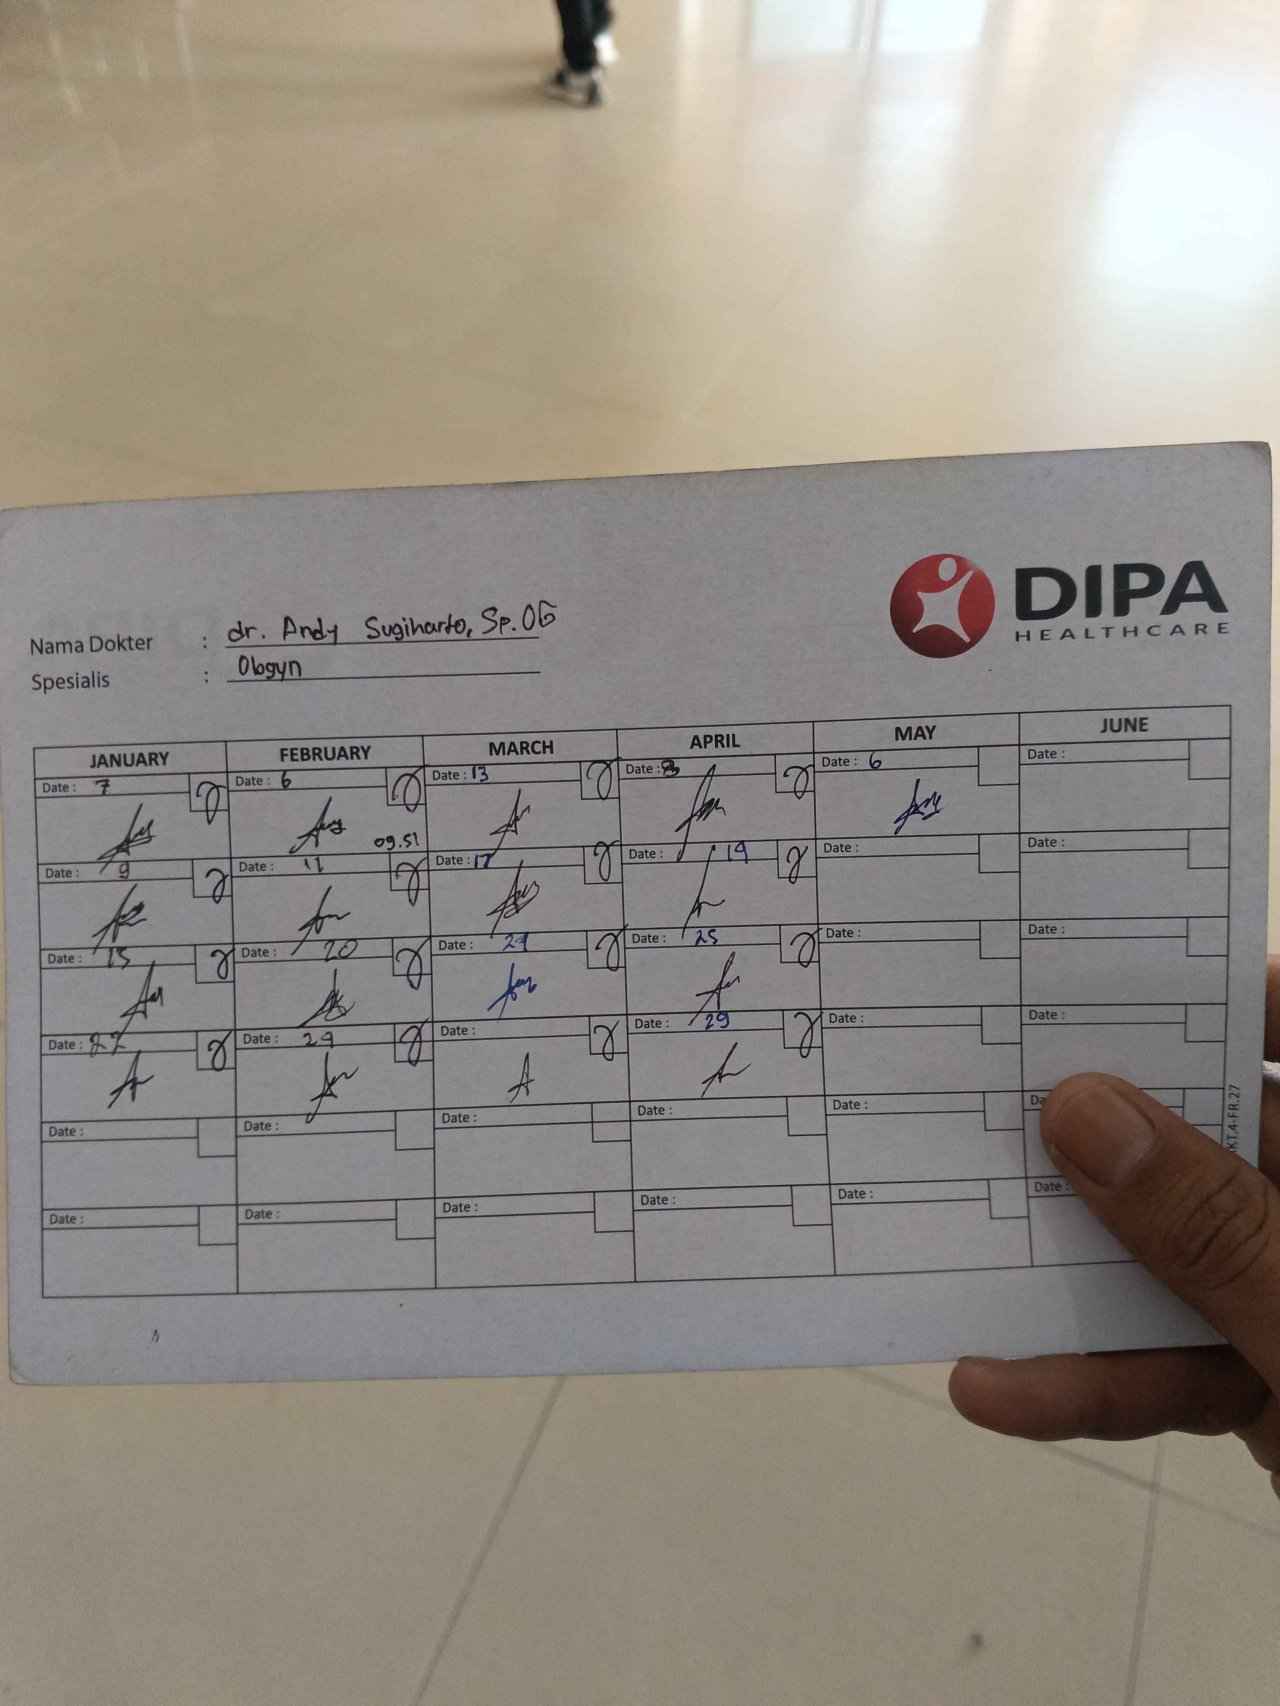 DIPA
HEALTHCARE
Nama Dokter : dr. Andy Sugiharto, Sp.OG
Spesialis : Obgyn
JANUARY FEBRUARY MARCH APRIL MAY JUNE
Date : 7 Date : 6 Date : 13 Date : 8 Date : 6 Date :
09.51
Date : 9 Date : 11 Date : 17 Date : 19 Date : Date :
Date : 15 Date : 20 Date : Date : 25 Date : Date :
Date : 22 Date : Date : Date : 29 Date : Date :
Date : Date : Date : Date : Date :
Date : Date : Date : Date : Date : Date :
KT.4-FR.27